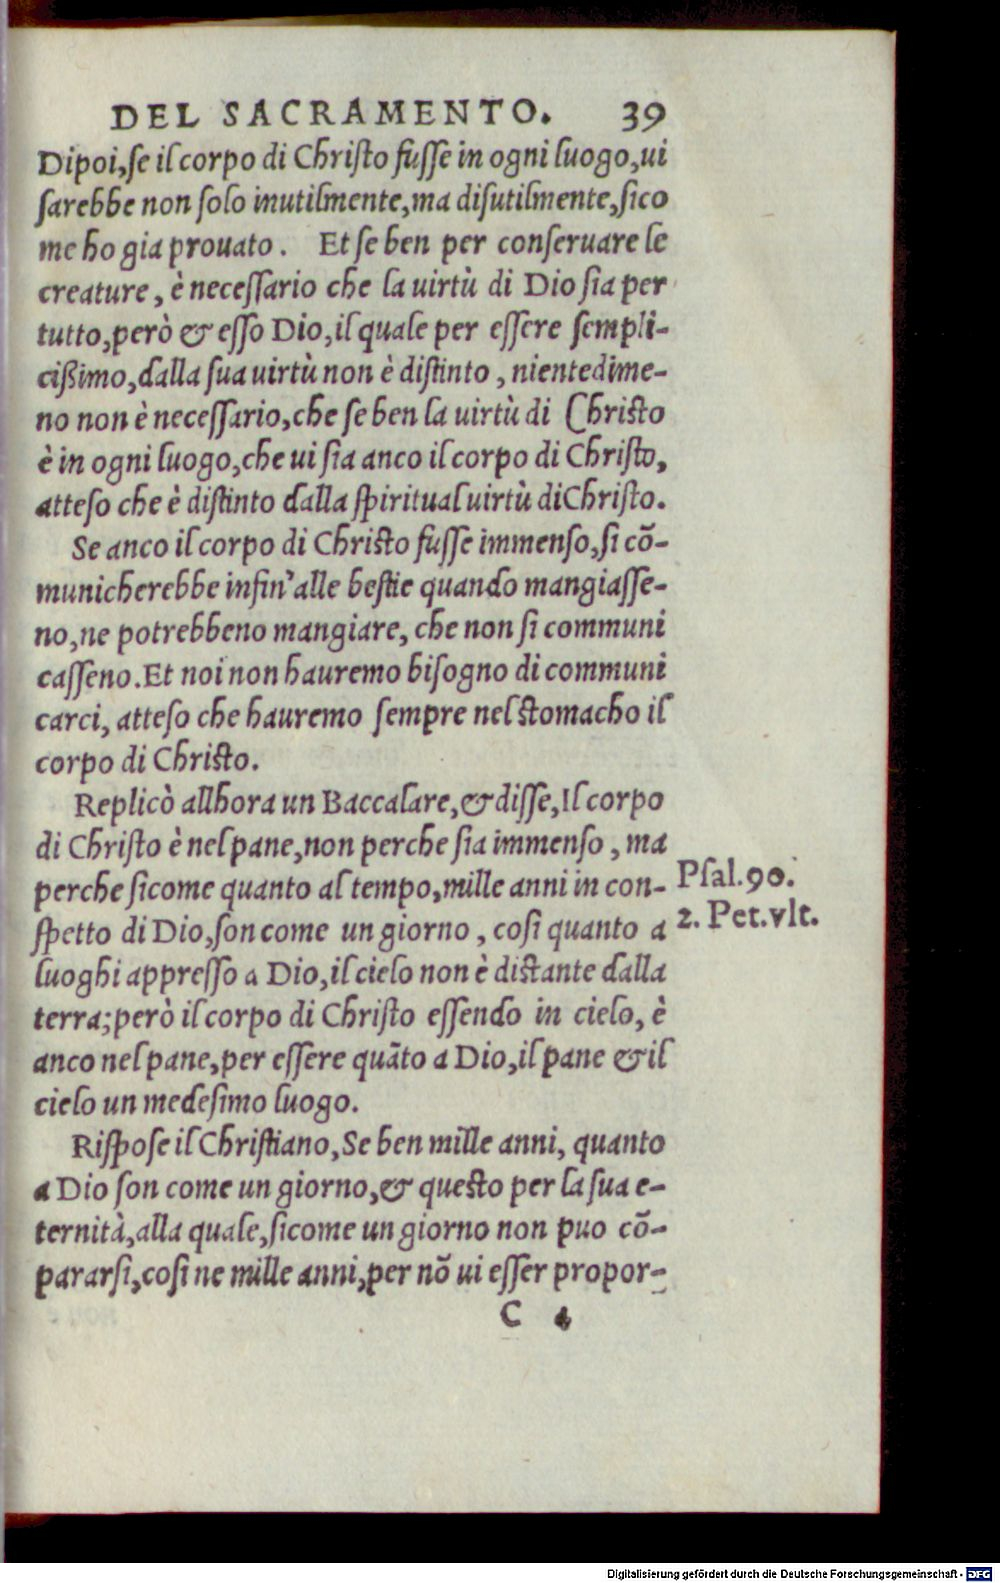 DEL SACRAMENTO. 39
Dipoi,ſe il corpo di Chriſto fuſſe in ogni luogo,ui
ſarebbe non ſolo inutilmente,ma diſutilmente,ſico
me ho gia prouato. Et ſe ben per conſeruare le
creature, è neceſſario che la uirtù di Dio ſia per
tutto,però & eſſo Dio,il quale per eſſere ſempli-
cißimo,dalla ſua uirtù non è diſtinto, nientedime-
no non è neceſſario,che ſe ben la uirtù di Chriſto
è in ogni luogo,che ui ſia anco il corpo di Chriſto,
atteſo che è diſtinto dalla ſpiritual uirtù di Chriſto.
Se anco il corpo di Chriſto fuſſe immenſo,ſi cō-
municherebbe infin'alle beſtie quando mangiaſſe-
no,ne potrebbeno mangiare, che non ſi communi
caſſeno. Et noi non hauremo biſogno di communi
carci, atteſo che hauremo ſempre nel ſtomacho il
corpo di Chriſto.
Replicò allhora un Baccalare,& diſſe,Il corpo
di Chriſto è nel pane,non perche ſia immenſo, ma
perche ſicome quanto al tempo,mille anni in con-
Pſal.90.
ſpetto di Dio,ſon come un giorno, coſi quanto a
2. Pet.vlt.
luoghi appreſſo a Dio,il cielo non è diſtante dalla
terra;però il corpo di Chriſto eſſendo in cielo, è
anco nel pane,per eſſere quāto a Dio,il pane & il
cielo un medeſimo luogo.
Riſpoſe il Chriſtiano,Se ben mille anni, quanto
a Dio ſon come un giorno,& queſto per la ſua e-
ternità,alla quale,ſicome un giorno non puo cō-
pararſi,coſi ne mille anni,per nō ui eſſer propor-
C 4
Digitalisierung gefördert durch die Deutsche Forschungsgemeinschaft - DFG